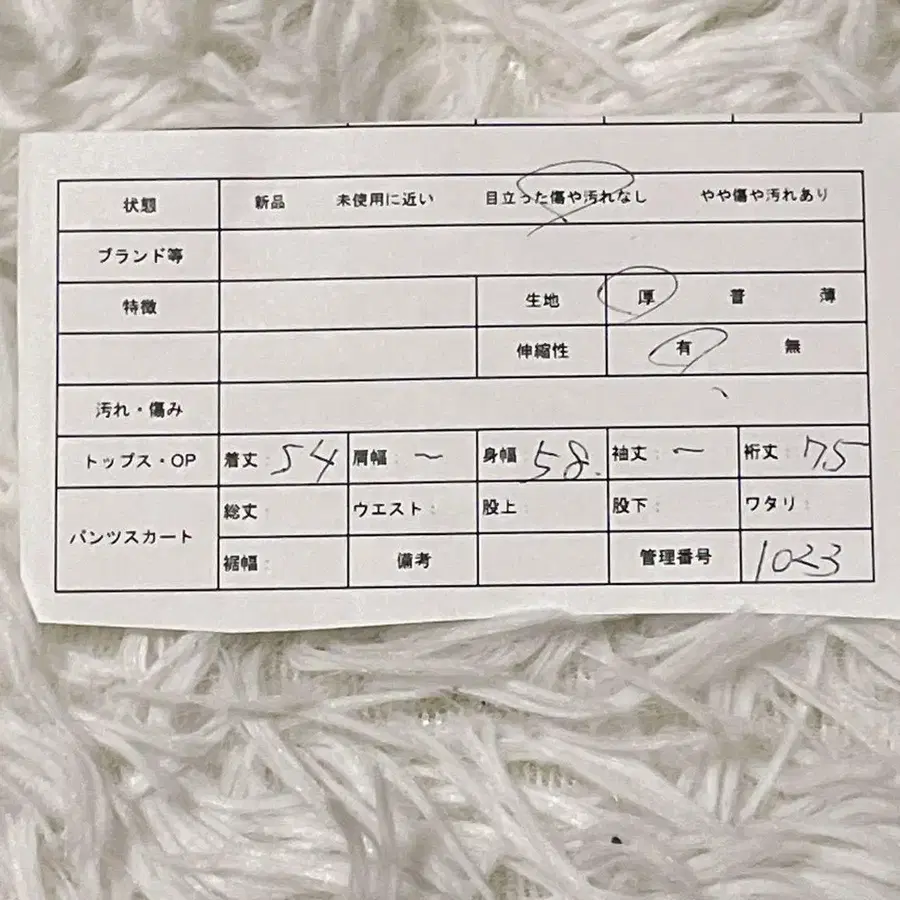 状態 新品 未使用に近い 目立った傷や汚れなし やや傷や汚れあり
ブランド等
特徴 生地 厚 普 薄
伸縮性 有 無
汚れ・傷み
トップス・OP 着丈: 54 肩幅: ～ 身幅: 58. 袖丈: ～ 裄丈: 75
パンツスカート 総丈: ウエスト: 股上: 股下: ワタリ:
裾幅: 備考 管理番号 1023